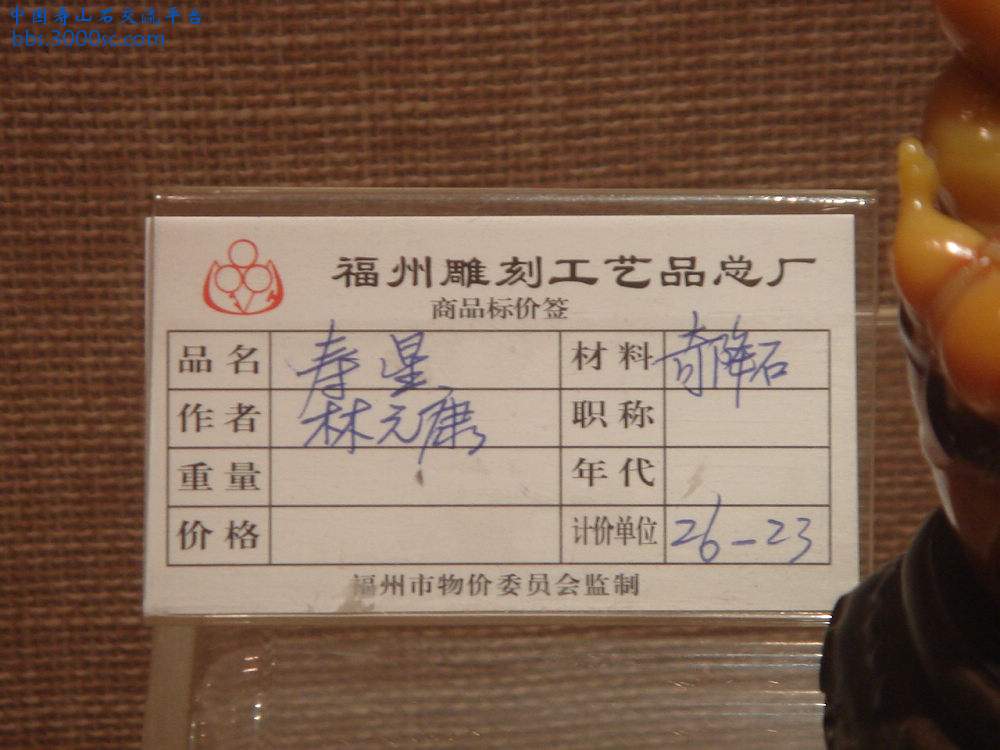 中国寿山石交流平台
bbs.3000sc.com
福州雕刻工艺品总厂
商品标价签
品名 寿星 材料 奇降石
作者 林元康 职称
重量 年代
价格 计价单位 26-23
福州市物价委员会监制